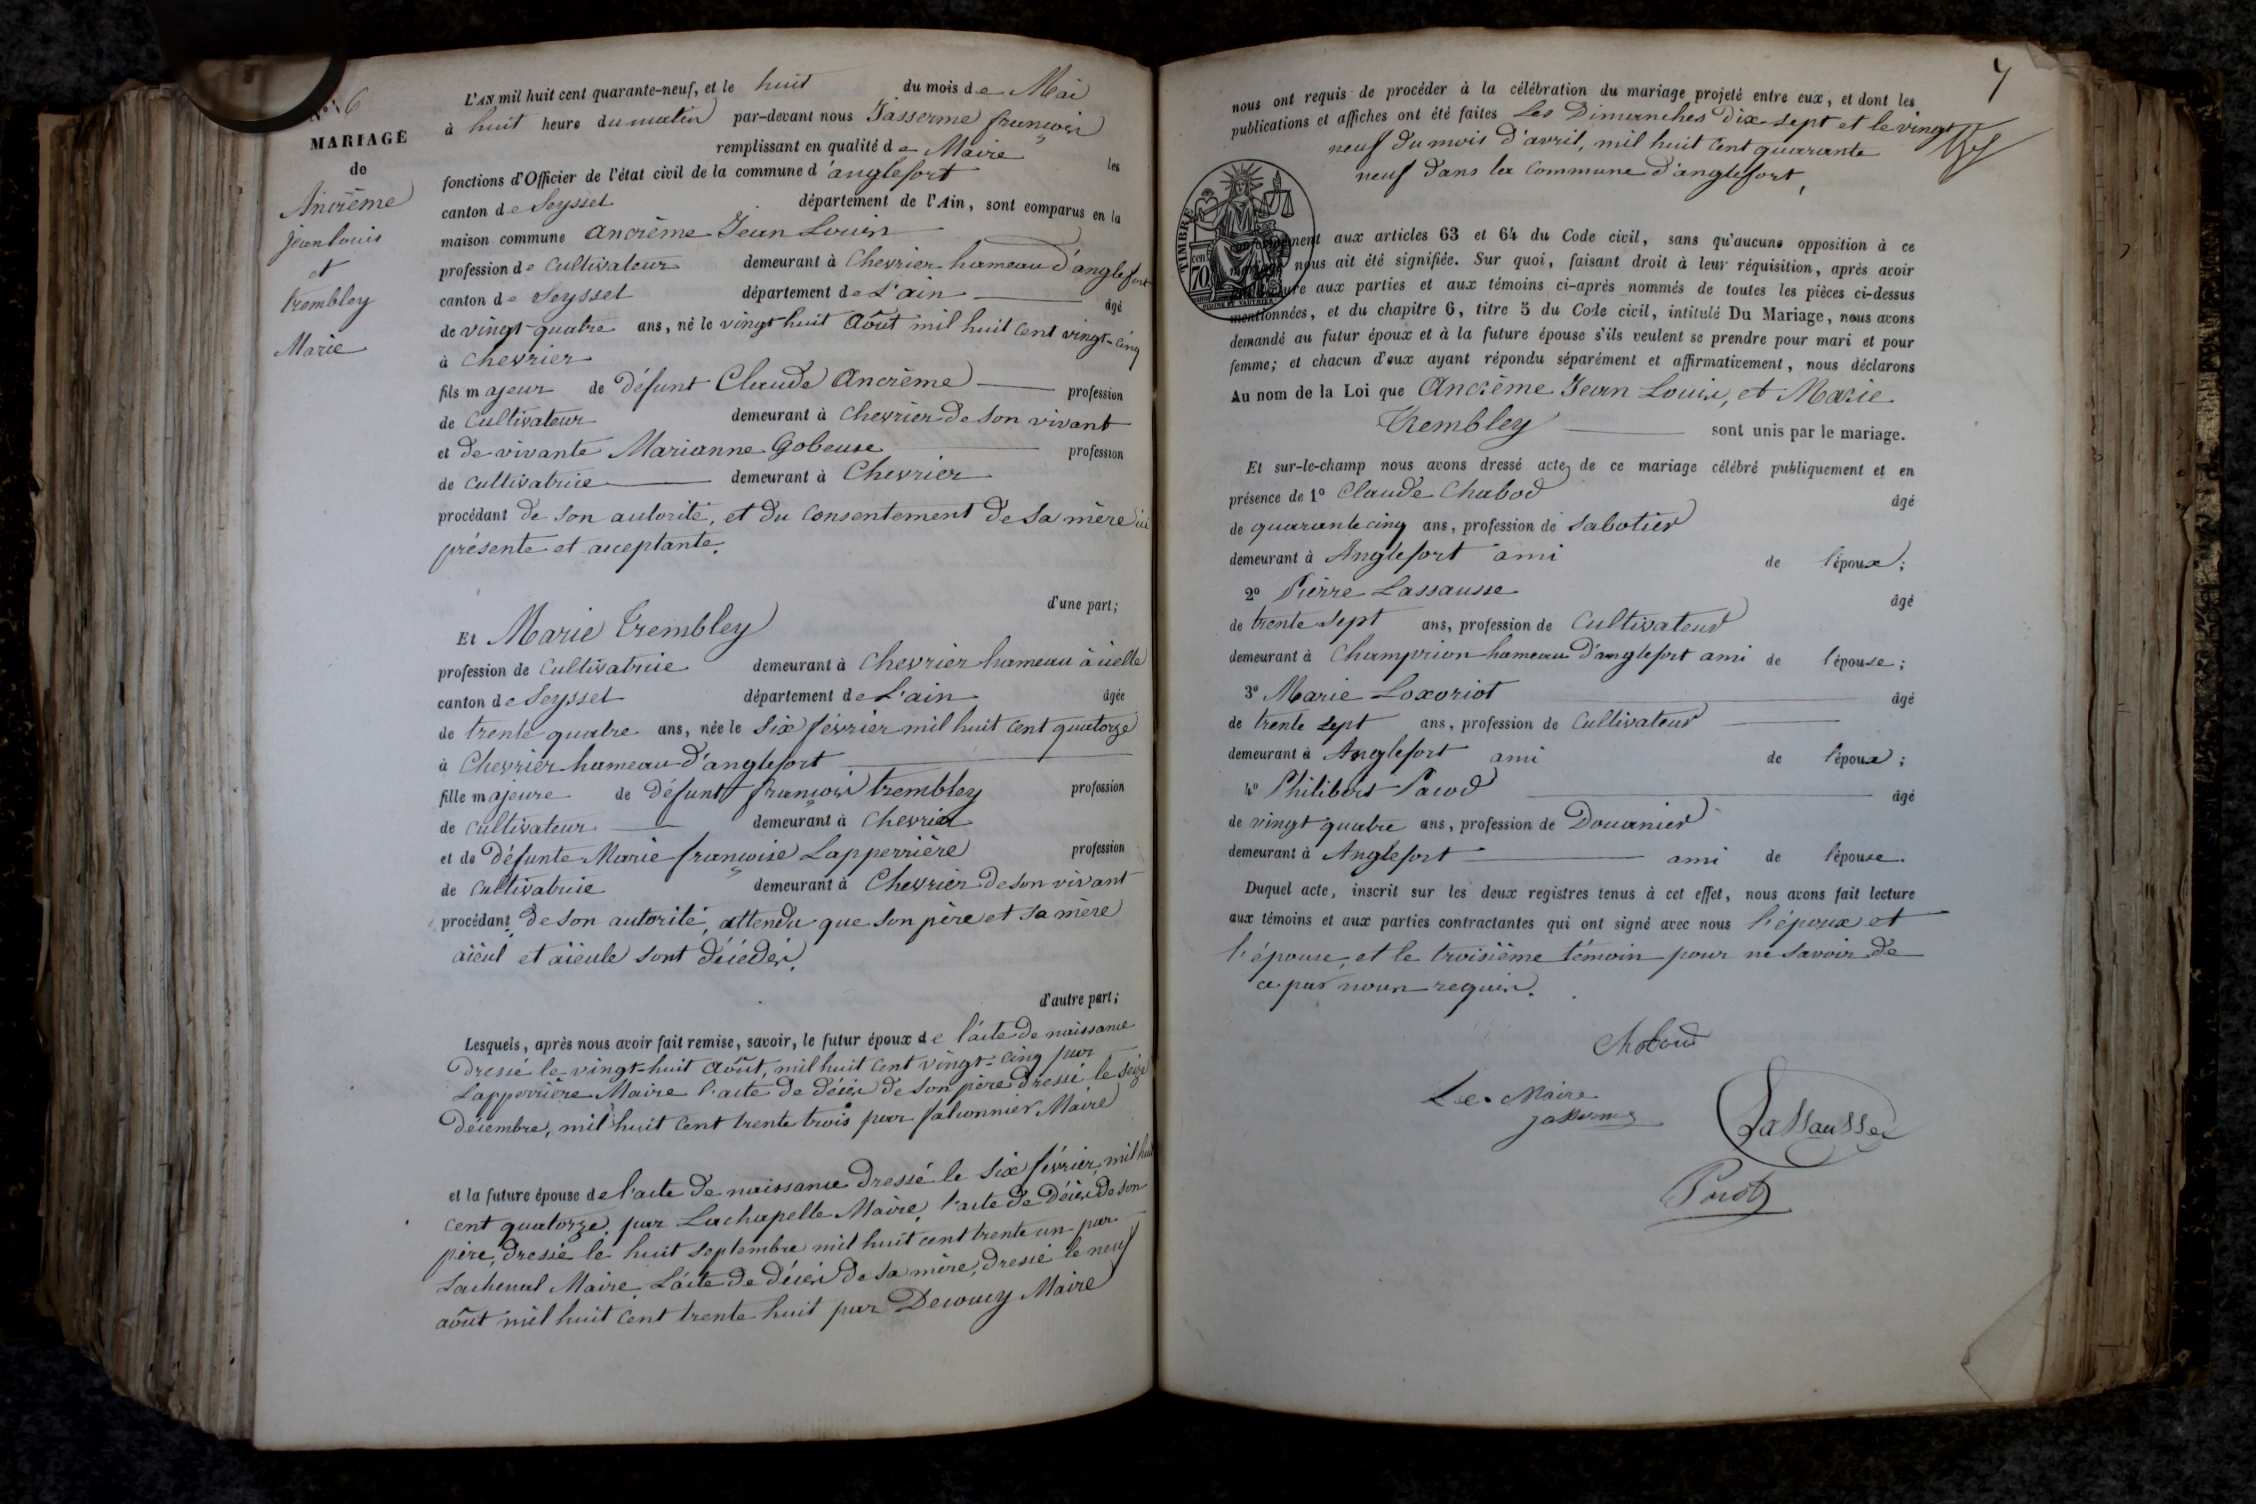 N° 6
MARIAGE
de
Ancrême
jean louis
et
trembley
Marie
L'AN mil huit cent quarante-neuf, et le huit du mois de Mai
à huit heure du matin par-devant nous Jasserme françois
remplissant en qualité de Maire les
fonctions d'Officier de l'état civil de la commune d'anglefort
canton de Seyssel département de l'Ain, sont comparus en la
maison commune ancrême Jean Louis
profession de Cultivateur demeurant à Chevrier hameau d'anglefort
canton de Seyssel département de L'ain âgé
de vingt-quatre ans, né le vingt huit Août mil huit Cent vingt-cinq
à Chevrier
fils majeur de défunt Claude Ancrême profession
de Cultivateur demeurant à Chevrier de son vivant
et de vivante Marianne Gobeuse profession
de cultivatrice demeurant à Chevrier
procédant de son autorité, et du Consentement de sa mère ici
présente et acceptante.
d'une part;
Et Marie Trembley
profession de Cultivatrice demeurant à Chevrier hameau à icelle
canton de Seyssel département de L'ain âgée
de trente quatre ans, née le Six février mil huit Cent quatorze
à Chevrier hameau d'anglefort
fille majeure de défunt françois trembley profession
de Cultivateur demeurant à Chevrier
et de défunte Marie françoise Lapperrière profession
de Cultivatrice demeurant à Chevrier de son vivant
procédant de son autorité, attendu que son père et sa mère
aïeul et aïeule sont décédés.
d'autre part;
Lesquels, après nous avoir fait remise, savoir, le futur époux de l'acte de naissance
dressé le vingt-huit Août, mil huit cent vingt-cinq par
Lapperrière Maire l'acte de décès de son père dressé le seize
décembre, mil huit Cent trente trois par falconnier Maire
et la future épouse de l'acte de naissance dressé le Six février, mil huit
cent quatorze, par Lachapelle Maire, l'acte de décès de son
père, dressé le huit septembre mil huit cent trente un par
Lachenal Maire, L'acte de décès de sa mère, dressé le neuf
août mil huit Cent trente huit par Decoucy Maire
7
nous ont requis de procéder à la célébration du mariage projeté entre eux, et dont les
publications et affiches ont été faites Les Dimanches dix sept et le vingt
neuf du mois d'avril, mil huit Cent quarante
neuf dans la Commune d'anglefort,
TIMBRE
70 cen
conformément aux articles 63 et 64 du Code civil, sans qu'aucune opposition à ce
mariage nous ait été signifiée. Sur quoi, faisant droit à leur réquisition, après avoir
fait lecture aux parties et aux témoins ci-après nommés de toutes les pièces ci-dessus
mentionnées, et du chapitre 6, titre 5 du Code civil, intitulé Du Mariage, nous avons
demandé au futur époux et à la future épouse s'ils veulent se prendre pour mari et pour
femme; et chacun d'eux ayant répondu séparément et affirmativement, nous déclarons
Au nom de la Loi que Ancrême Jean Louis, et Marie
Trembley sont unis par le mariage.
Et sur-le-champ nous avons dressé acte de ce mariage célébré publiquement et en
présence de 1° Claude Chabod âgé
de quarante cinq ans, profession de Sabotier
demeurant à Anglefort ami de l'époux;
2° Pierre Lassausse âgé
de trente sept ans, profession de Cultivateur
demeurant à Champrion hameau d'anglefort ami de l'épouse;
3° Marie Loxoriot âgé
de trente sept ans, profession de Cultivateur
demeurant à Anglefort ami de l'époux;
4° Philibert Pacod âgé
de vingt quatre ans, profession de Douanier
demeurant à Anglefort ami de l'épouse.
Duquel acte, inscrit sur les deux registres tenus à cet effet, nous avons fait lecture
aux témoins et aux parties contractantes qui ont signé avec nous l'époux et
l'épouse, et le troisième témoin pour ne savoir de
ce par nous requis.
Chabod
Le Maire
jasserme
Lassausse